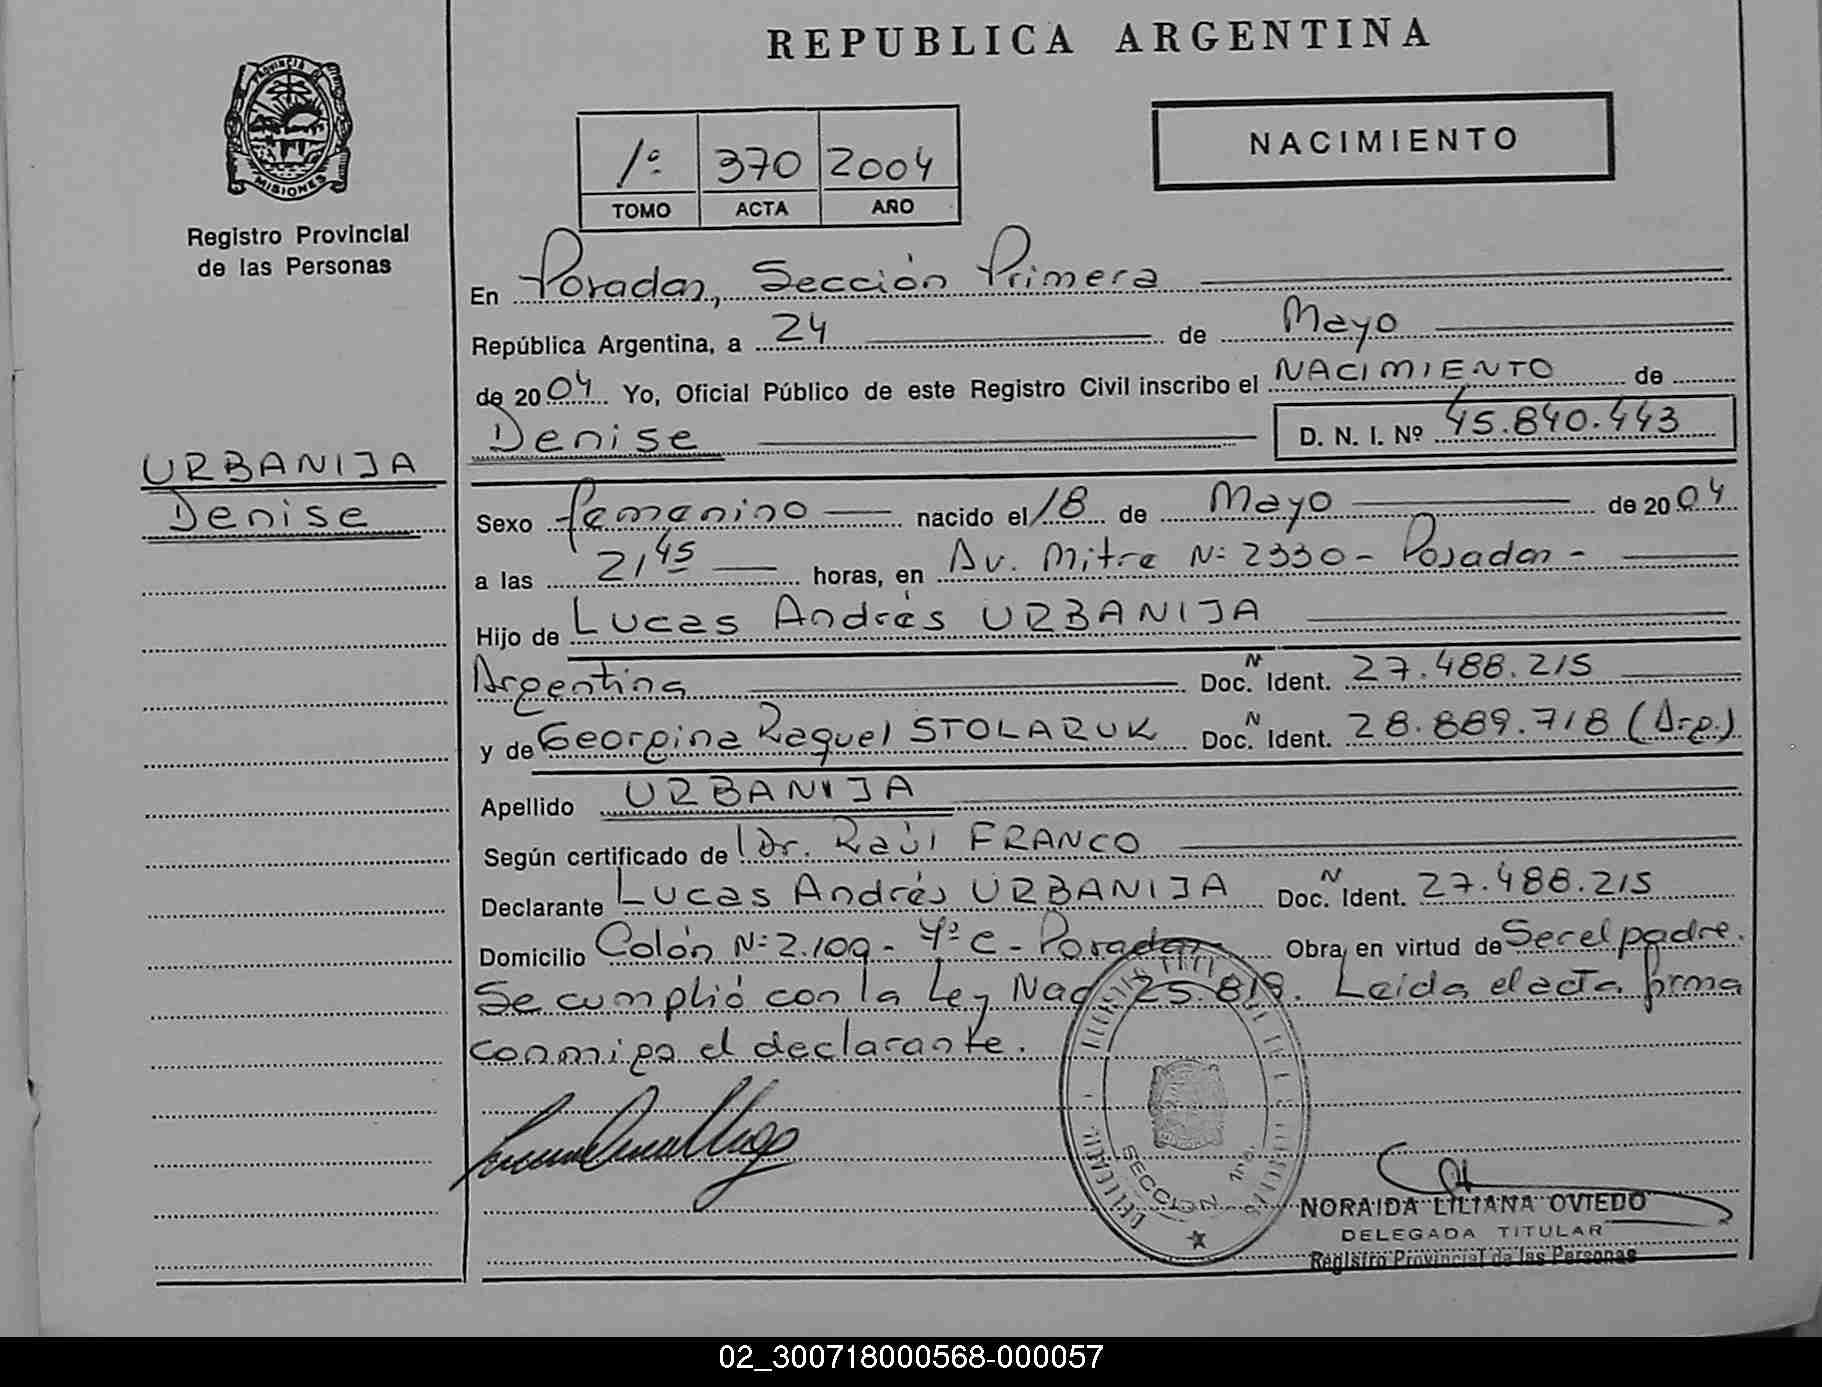 REPUBLICA ARGENTINA
PROVINCIA DE
MISIONES
Registro Provincial
de las Personas
NACIMIENTO
1º 370 2004
TOMO ACTA AÑO
En Posadas, Sección Primera
República Argentina, a 24 de Mayo
de 2004 Yo, Oficial Público de este Registro Civil inscribo el NACIMIENTO de
Denise D. N. I. Nº 45.840.443
URBANIJA
Denise
Sexo femenino nacido el 18 de Mayo de 2004
a las 21 45 horas, en Av. Mitre Nº 2330 - Posadas -
Hijo de Lucas Andrés URBANIJA
Argentina Doc. N Ident. 27.488.215
y de Georgina Raquel STOLARUK Doc. N Ident. 28.889.718 (Arg.)
Apellido URBANIJA
Según certificado de Dr. Raúl FRANCO
Declarante Lucas Andrés URBANIJA Doc. N Ident. 27.488.215
Domicilio Colón Nº 2.109 - 4º C - Posadas Obra, en virtud de Ser el padre.
Se cumplió con la Ley Nac. 25.819. Leída el acta firma
conmigo el declarante.
SECCION 1ra.
NORAIDA LILIANA OVIEDO
DELEGADA TITULAR
Registro Provincial de las Personas
02_300718000568-000057